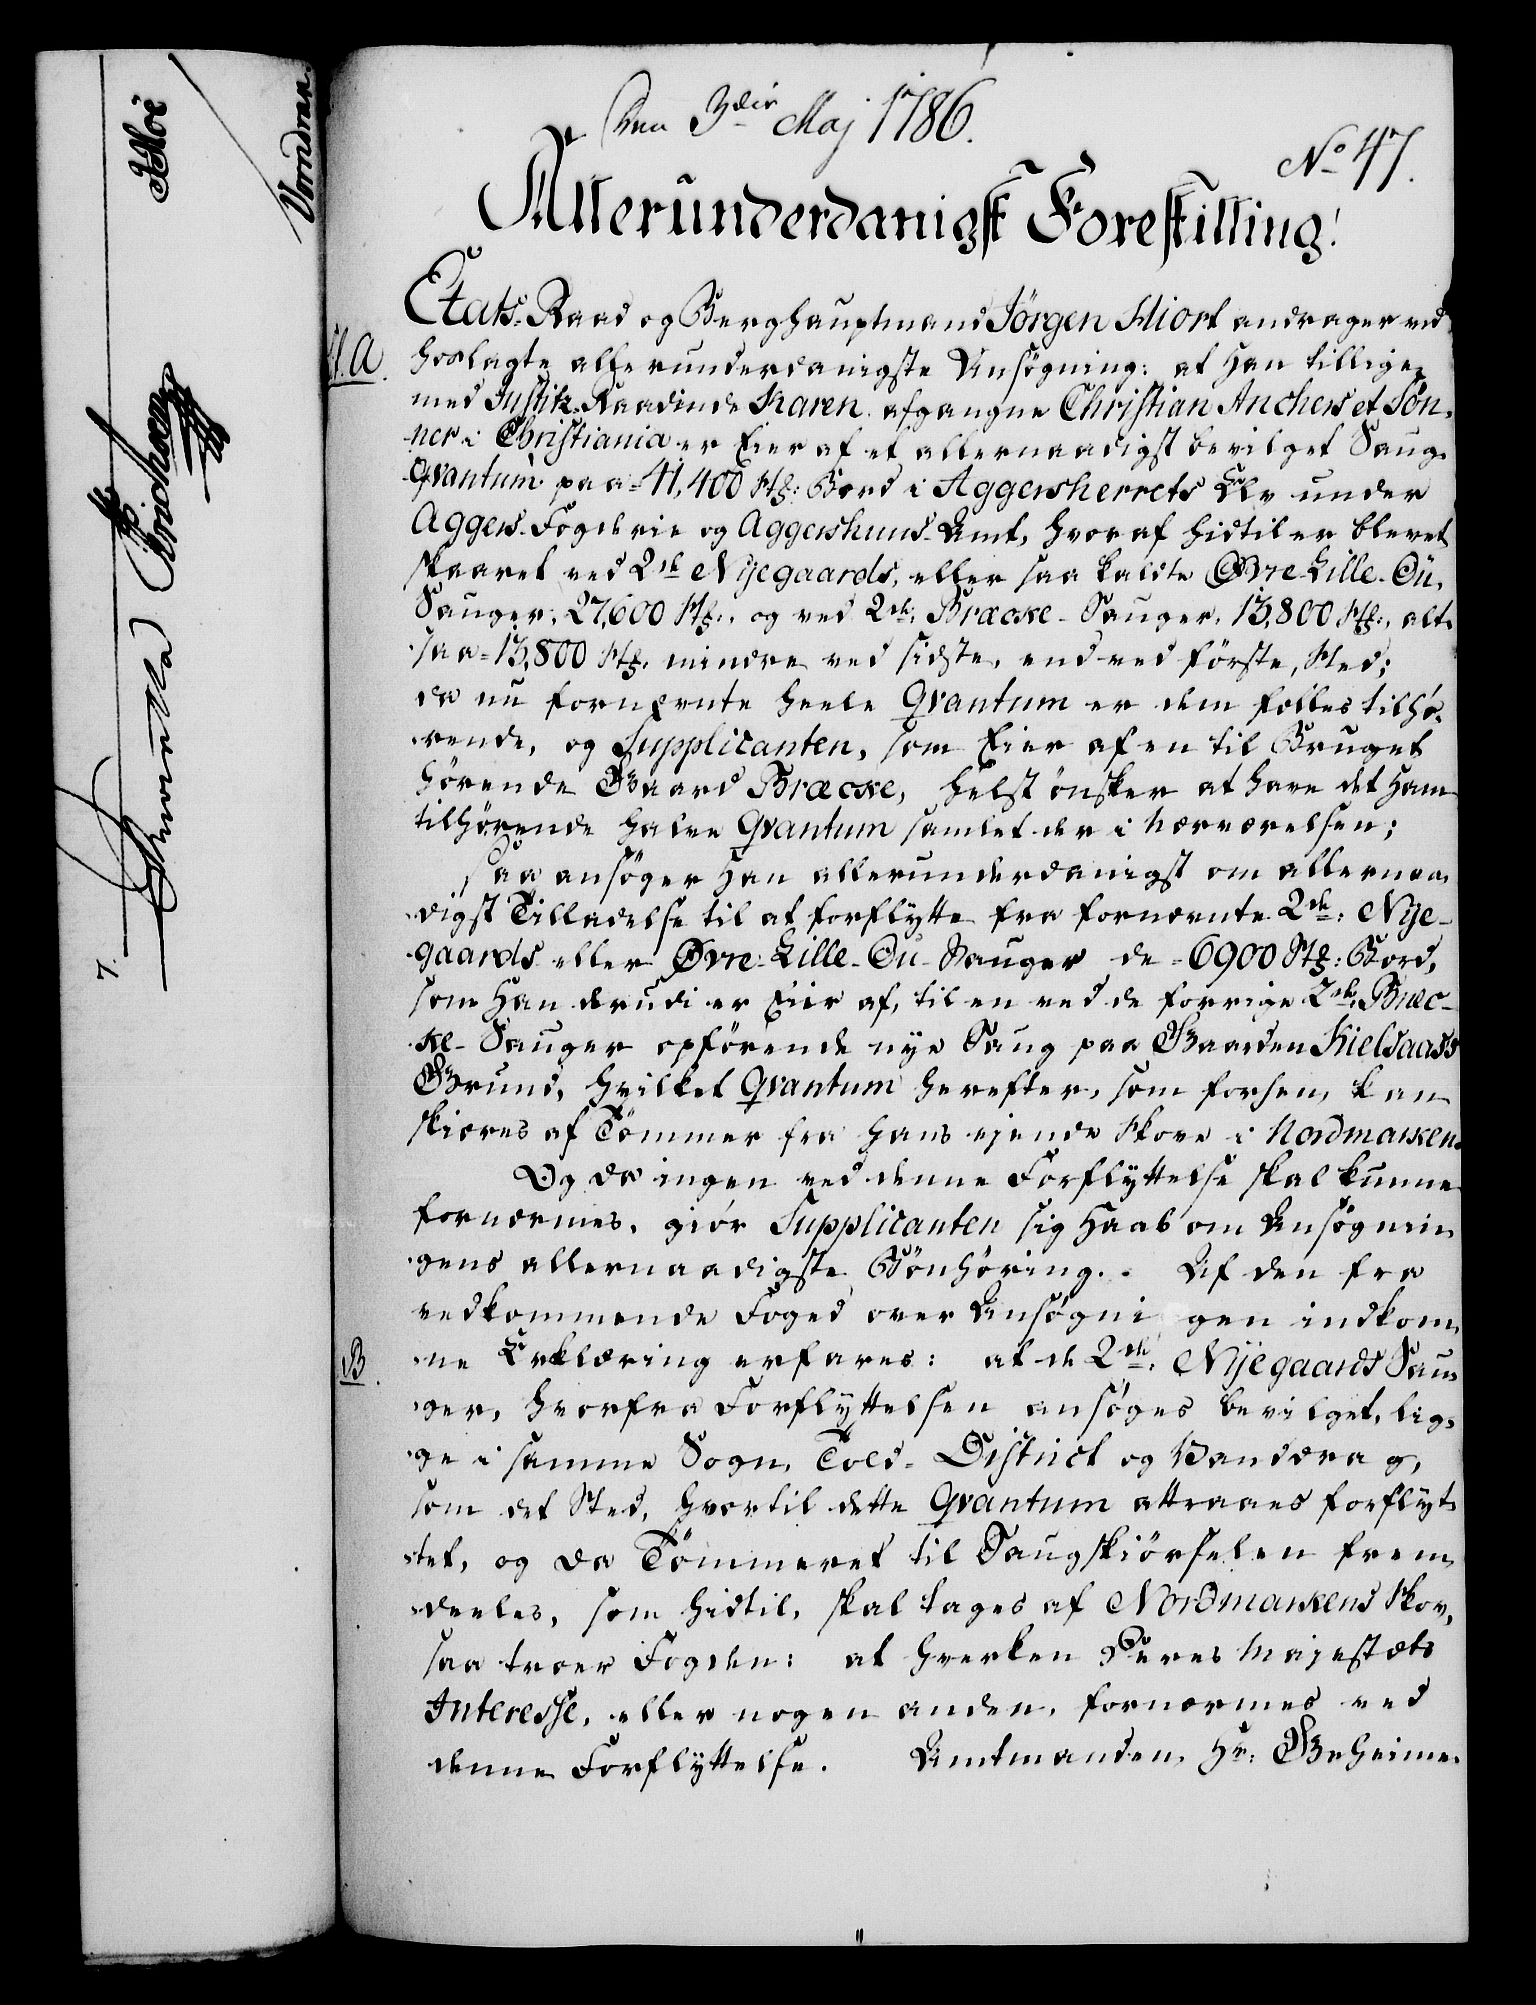 Den 3die Maj 1786.
No 47.
Allerunderdanigst Forestilling!
Etats-Raad og Berghauptmand Jörgen Hiort andrager ved
A. hoslagte allerunderdanigste Ansøgning: at Han tillige
med Justitz-Raadinde Karen afgangne Christian Anchers et Søn-
ner i Christiania er Eier af et allernaadigst bevilget Saug-
Qvantum paa 41,400 Stk: Bord i Aggersherrets Elv under
Aggers-Fogderie og Aggershuus-Amt, hvoraf hidtil er blevet
skaaret ved 2de Nÿegaards, eller saa kaldte Øvre-Lille-Ou-
Sauger, 27,600 Stk:, og ved 2de: Bræcke-Sauger, 13,800 Stk:, alt-
saa 13,800 Stk: mindre ved sidste, end ved förste, Sted;
da nu fornævnte heele Qvantum er dem fælles tilhø-
rende, og Supplicanten, som Eier af en til Bruget
hörende Gaard Bræcke, helst önsker at have det Ham
tilhörende halve Qvantum samlet der i Nærværelsen;
saa ansøger Han allerunderdanigst om allernaa-
digst Tilladelse til at forflytte fra fornævnte 2de: Nÿe-
gaards eller Øvre-Lille-Ou-Sauger de 6900 Stk: Bord,
som Han derudi er Eier af, til en ved de forrige 2de: Bræc-
ke-Sauger opförende nye Saug paa Gaarden Kielsaas's
Grund, hvilket Qvantum herefter, som forhen, kan
skiæres af Tömmer fra Hans ejende Skove i Nordmarken.
Og da ingen ved denne Forflyttelse skal kunne
fornærmes, giör Supplicanten sig Haab om Ansøgnin-
gens allernaadigste Bönhöring. Af den fra
vedkommende Foged over Ansøgningen indkom-
B. ne Erklæring erfares: at de 2de: Nÿegaards Sau-
ger, hvorfra Forflyttelsen ansøges bevilget, lig-
ge i samme Sogn, Told-District og Vanddrag,
som det Sted, hvortil dette Qvantum attraaes forflyt-
tet, og da Tömmeret til Saugskiörselen frem-
deeles, som hidtil, skal tages af Nordmarkens Skov,
saa troer Fogden: at hverken Deres Majestæts
Interesse, eller nogen anden, fornærmes ved
denne Forflyttelse. Amtmanden, Hr: Geheime-
Moe
Vondran.
7.